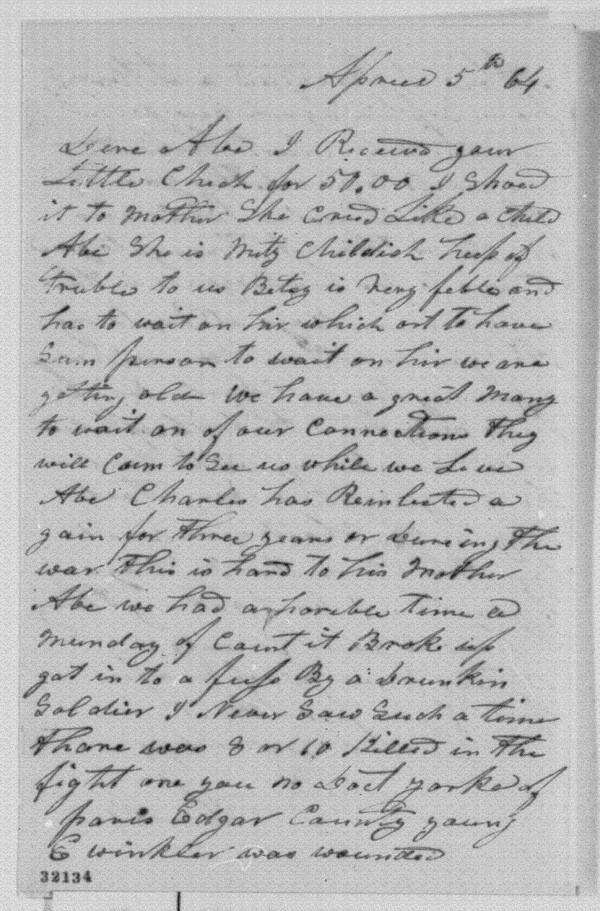 Apriel 5th 64.
Dere Abe I Received your
Little Check for 50,00 I Shoed
it to Mother She Cried Like a Child
Abe She is Mity Childish heep of
truble to us Betsy is very feble and
has to wait on hir which ort to have
Sum person to wait on hir we are
getting old we have a great Many
to wait on of our Connections they
will Cum to See us while we Live
Abe Charles has Reinlected a
gain for three years or dureing the
war this is hard to his Mother
Abe we had a horible time a
Munday of Court it Broke up
got in to a fuss By a drunkin
Soldier I Never Saw Such a time
thare was 8 or 10 Killed in the
fight one you no doct yorke of
paris Edgar County young
E winkler was wounded
32134